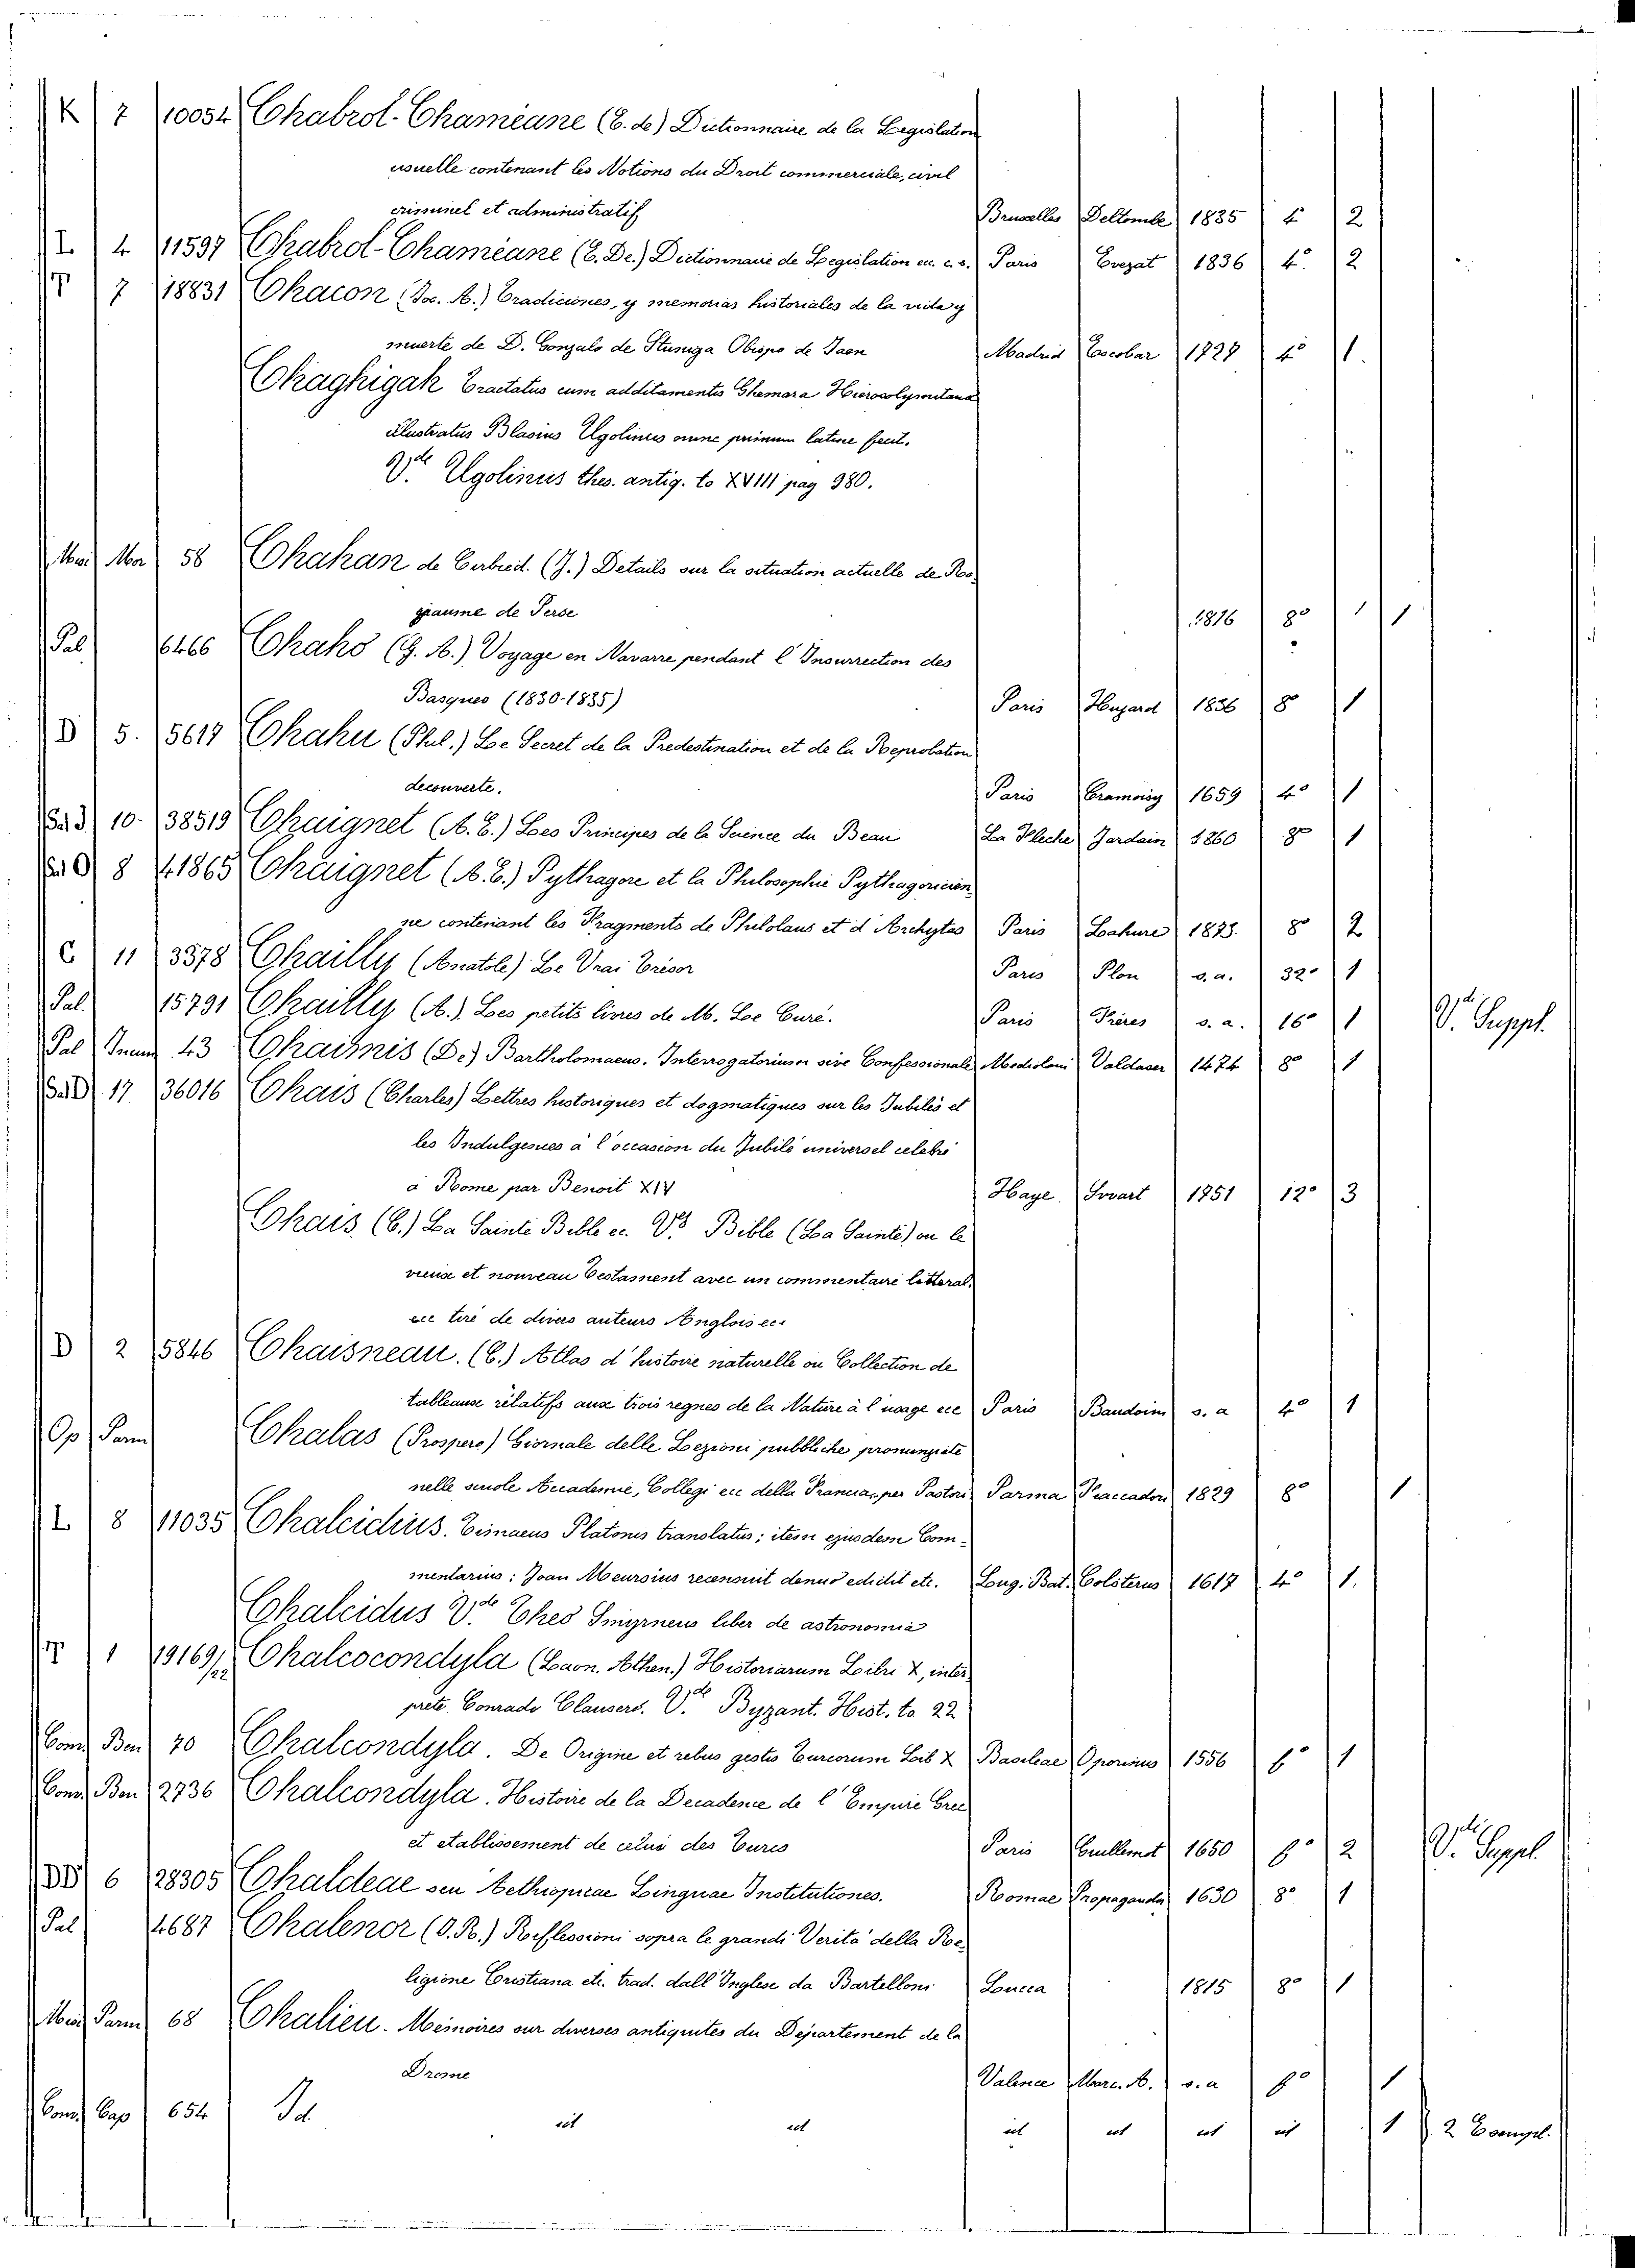 K 7 10054 Chabrol-Chaméane (E. de) Dictionnaire de la Legislation
usuelle contenant les Notions du Droit commerciale, civil
criminel et administratif Bruxelles Deltombe 1835 4° 2
L 4 11597 Chabrol-Chaméane (E. De.) Dictionnaire de Legislation ec. c.s. Paris Everat 1836 4° 2
7 18831 Chacon (Jos. A.) Tradiciones, y memorias historiales de la vida y
muerte de D. Gonzalo de Stuniga Obispo de Jaen Madrid Escobar 1727 4° 1.
Chaghigak Tractatus cum additamentis Ghemara Hierosolymitana
illustratus Blasius Ugolinus nunc primum latine fecit.
V.de Ugolinus thes. antiq. to XVIII pag 980.
Misc Mor 58 Chahan de Cerbied. (J.) Details sur la situation actuelle de Ro-
yaume de Perse 1816 8° 1 1
Pal 6466 Chaho (G. A.) Voyage en Navarre pendant l'Insurrection des
Basques (1830-1835) Paris 1836 8° 1
D 5. 5617 Chahu (Phil.) Le Secret de la Predestination et de la Reprobation
decouverte. Paris Cramoisy 1659 4° 1
10. 38519 Chaignet (A. E.) Les Principes de la Science du Beau La Fleche Jardain 1860 8° 1
8 41865 Chaignet (A. E.) Pythagore et la Philosophie Pythagoricien-
ne contenant les Fragments de Philolaus et d'Archytas Paris Lahure 1873. 8° 2
C 11 3578 Chailly (Anatole) Le Vrai Trésor Paris Plon s.a. 32° 1
Pal. 15791 Chailly (A.) Les petits livres de M. Le Curé. Paris Frères s. a. 16° 1 V.di Suppl.
Pal 43 Chaimis (De) Bartholomaeus. Interrogatorium sive Confessionale Mediolani Valdaser 1474 8° 1
17 36016 Chais (Charles) Lettres historiques et dogmatiques sur les Jubilés et
les Indulgences à l'occasion du Jubilé universel celebré
a Rome par Benoit XIV Haye. 1751 12° 3
Chais. (C.) La Sainte Bible ec. V.di Bible (La Sainte) ou le
vieux et nouveau Testament avec un commentaire litteral,
ecc tiré de divers auteurs Anglois ecc
D 2 5846 Chaisneau. (C.) Atlas d'histoire naturelle ou Collection de
tableaux rélatifs aux trois regnes de la Nature à l'usage ecc Paris Baudoin s. a 4° 1
Op Parm Chalas (Prospero) Giornale delle Lezioni pubbliche pronunziate
nelle scuole Accademie, Collegi ecc della Francia, per Pastori Parma Fiaccadori 1829 8° 1
L 8 11035 Chalcidius. Timaeus Platonis translatus; item ejusdem Com-
mentarius: Joan Meursius recensuit denuo edidit etc. Lug. Bat. Colsterus 1617 4° 1.
Chalcidus V.de Theo Smyrneus liber de astronomia
1 19169/22 Chalcocondyla (Laon. Athen.) Historiarum Libri X, inter-
prete Conrado Clausero. V.de Byzant. Hist. to 22
Com Ben 70 Chalcondyla. De Origine et rebus gestis Turcorum Lib X Basileae Oporinus 1556 f° 1
Com Ben 2736 Chalcondyla. Histoire de la Decadence de l'Empire Grec
et etablissement de celui des Turcs Paris 1650 f° 2 V.di Suppl
6 28305 Chaldeae seu Aethiopicae Linguae Institutiones. Romae Propaganda 1630 8° 1
Pal 4687 Chalenor (D. R.) Riflessioni sopra le grandi Verità della Re-
ligione Cristiana etc. trad. dall'Inglese da Bartelloni Lucca 1815 8° 1
Misc Parm 68 Chalieu. Mémoires sur diverses antiquités du Département de la
Drome Valence Marc. A. s. a f° 1
Com Cap 654 Id. id id id id id id 1 2 Exempl.